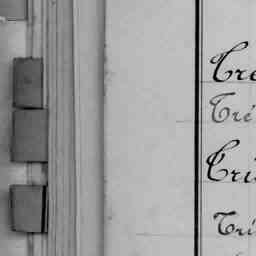 Tre
Tré
Cri
Tri